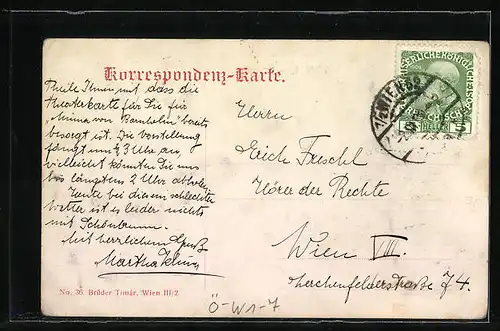 Korrespondenz-Karte.
Theile Ihnen mit dass die
Theaterkarte für Sie für
„Minna von Barnhelm" bereits
besorgt ist. Die Vorstellung
fängt um ½ 3 Uhr an,
vielleicht könnten Sie uns
bis längstens 2 Uhr abholen
Heute bei diesem schlechten
Wetter ist es leider nichts
mit Schönbrunn.
Mit herzlichem Gruß
Martha
Herrn
Erich Freschl
Hörer der Rechte
Wien VIII.
Lerchenfelderstraße 74.
No. 36 Brüder Tomár, Wien III/2
Ö-W1-7